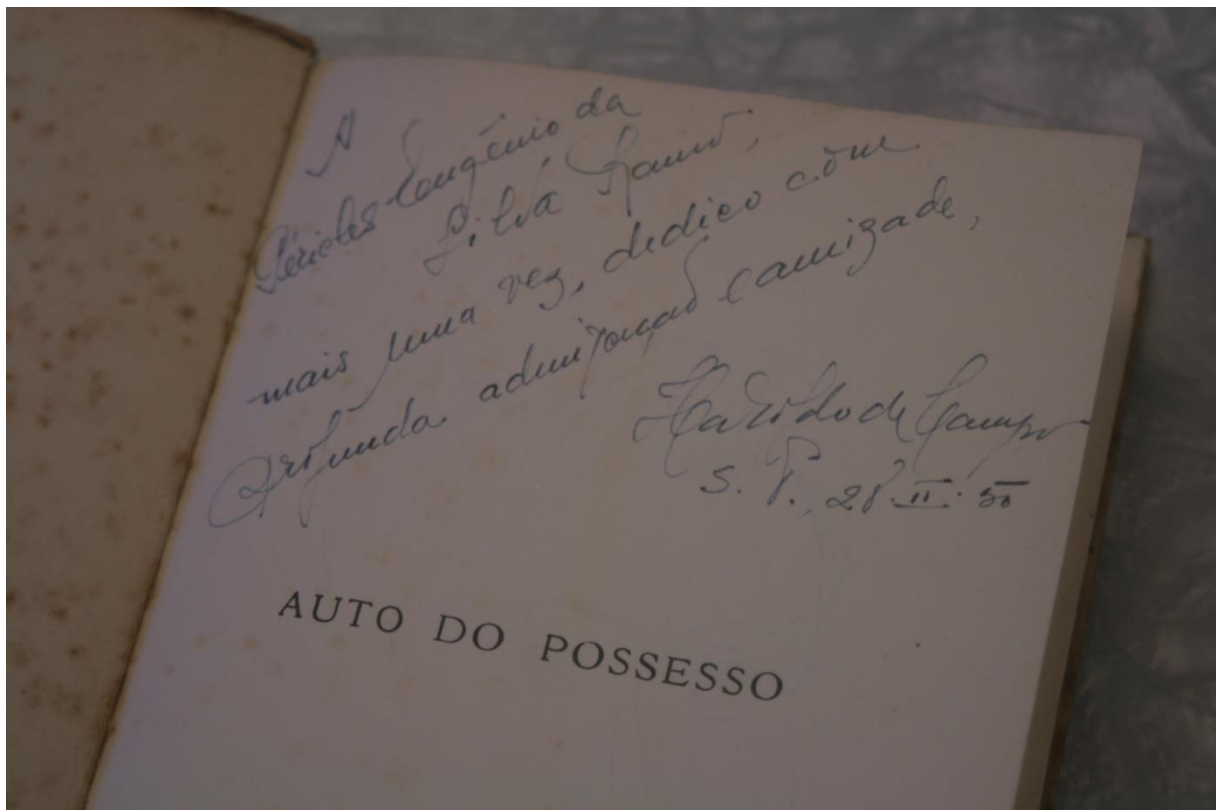 A
Péricles Eugênio da
Silva Ramos,
mais uma vez, dedico com
profunda admiração e amizade,
Haroldo de Campos
S. P. 28.II.50
AUTO DO POSSESSO